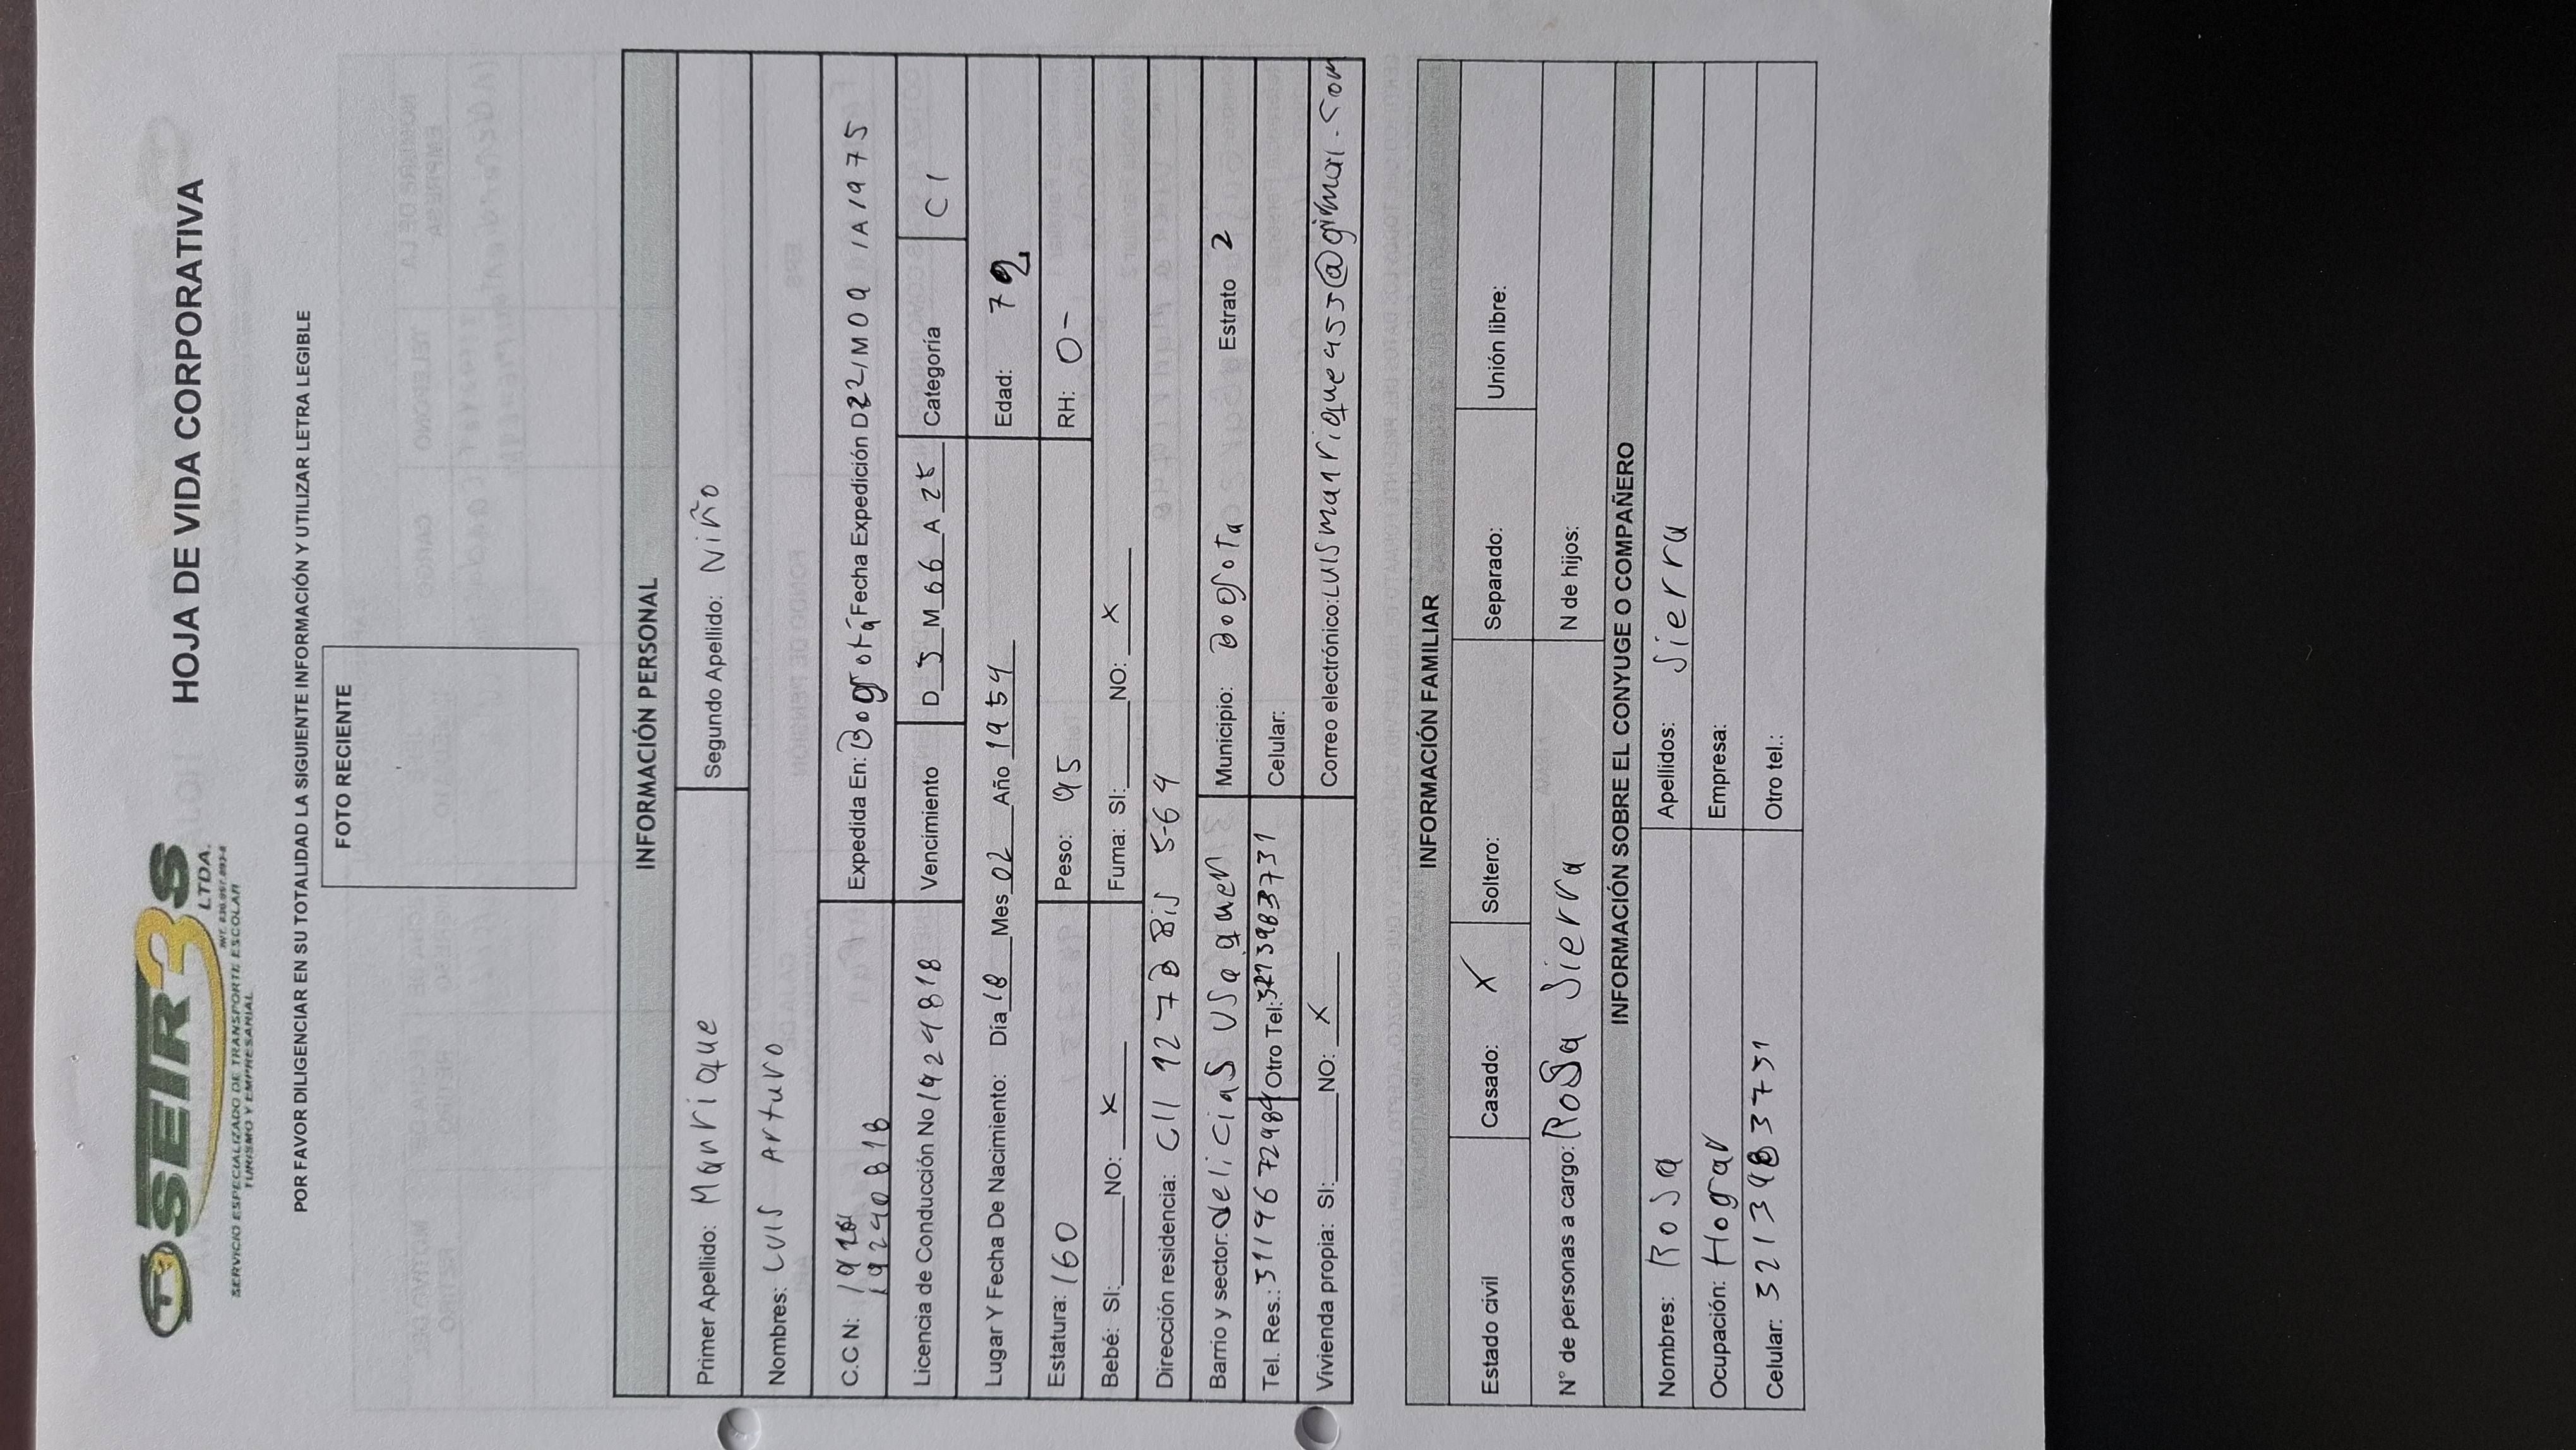 SEIR3S
LTDA.
NIT. 830.057.093-4
SERVICIO ESPECIALIZADO DE TRANSPORTE ESCOLAR
TURISMO Y EMPRESARIAL
HOJA DE VIDA CORPORATIVA
POR FAVOR DILIGENCIAR EN SU TOTALIDAD LA SIGUIENTE INFORMACIÓN Y UTILIZAR LETRA LEGIBLE
FOTO RECIENTE
INFORMACIÓN PERSONAL
Primer Apellido: Manrique Segundo Apellido: Niño
Nombres: Luis Arturo
C.C N: 19240818 Expedida En: Bogotá Fecha Expedición D 22/M 09 /A 1975
Licencia de Conducción No 1924818 Vencimiento D 5 M 06 A 25 Categoría C1
Lugar Y Fecha De Nacimiento: Día 18 Mes 02 Año 1954 Edad: 72
Estatura: 160 Peso: 95 RH: O-
Bebé: SI: NO: X Fuma: SI: NO: X
Dirección residencia: Cll 127B Bis 5-64
Barrio y sector: delicias Usaquen Municipio: Bogota Estrato 2
Tel. Res.: 3119672984 Otro Tel: 3213983731 Celular:
Vivienda propia: SI: NO: X Correo electrónico: Luismanrique455@gimai.com
INFORMACIÓN FAMILIAR
Estado civil Casado: X Soltero: Separado: Unión libre:
N° de personas a cargo: Rosa Sierra N de hijos:
INFORMACIÓN SOBRE EL CONYUGE O COMPAÑERO
Nombres: Rosa Apellidos: Sierra
Ocupación: Hogar Empresa:
Celular: 3213983731 Otro tel.: